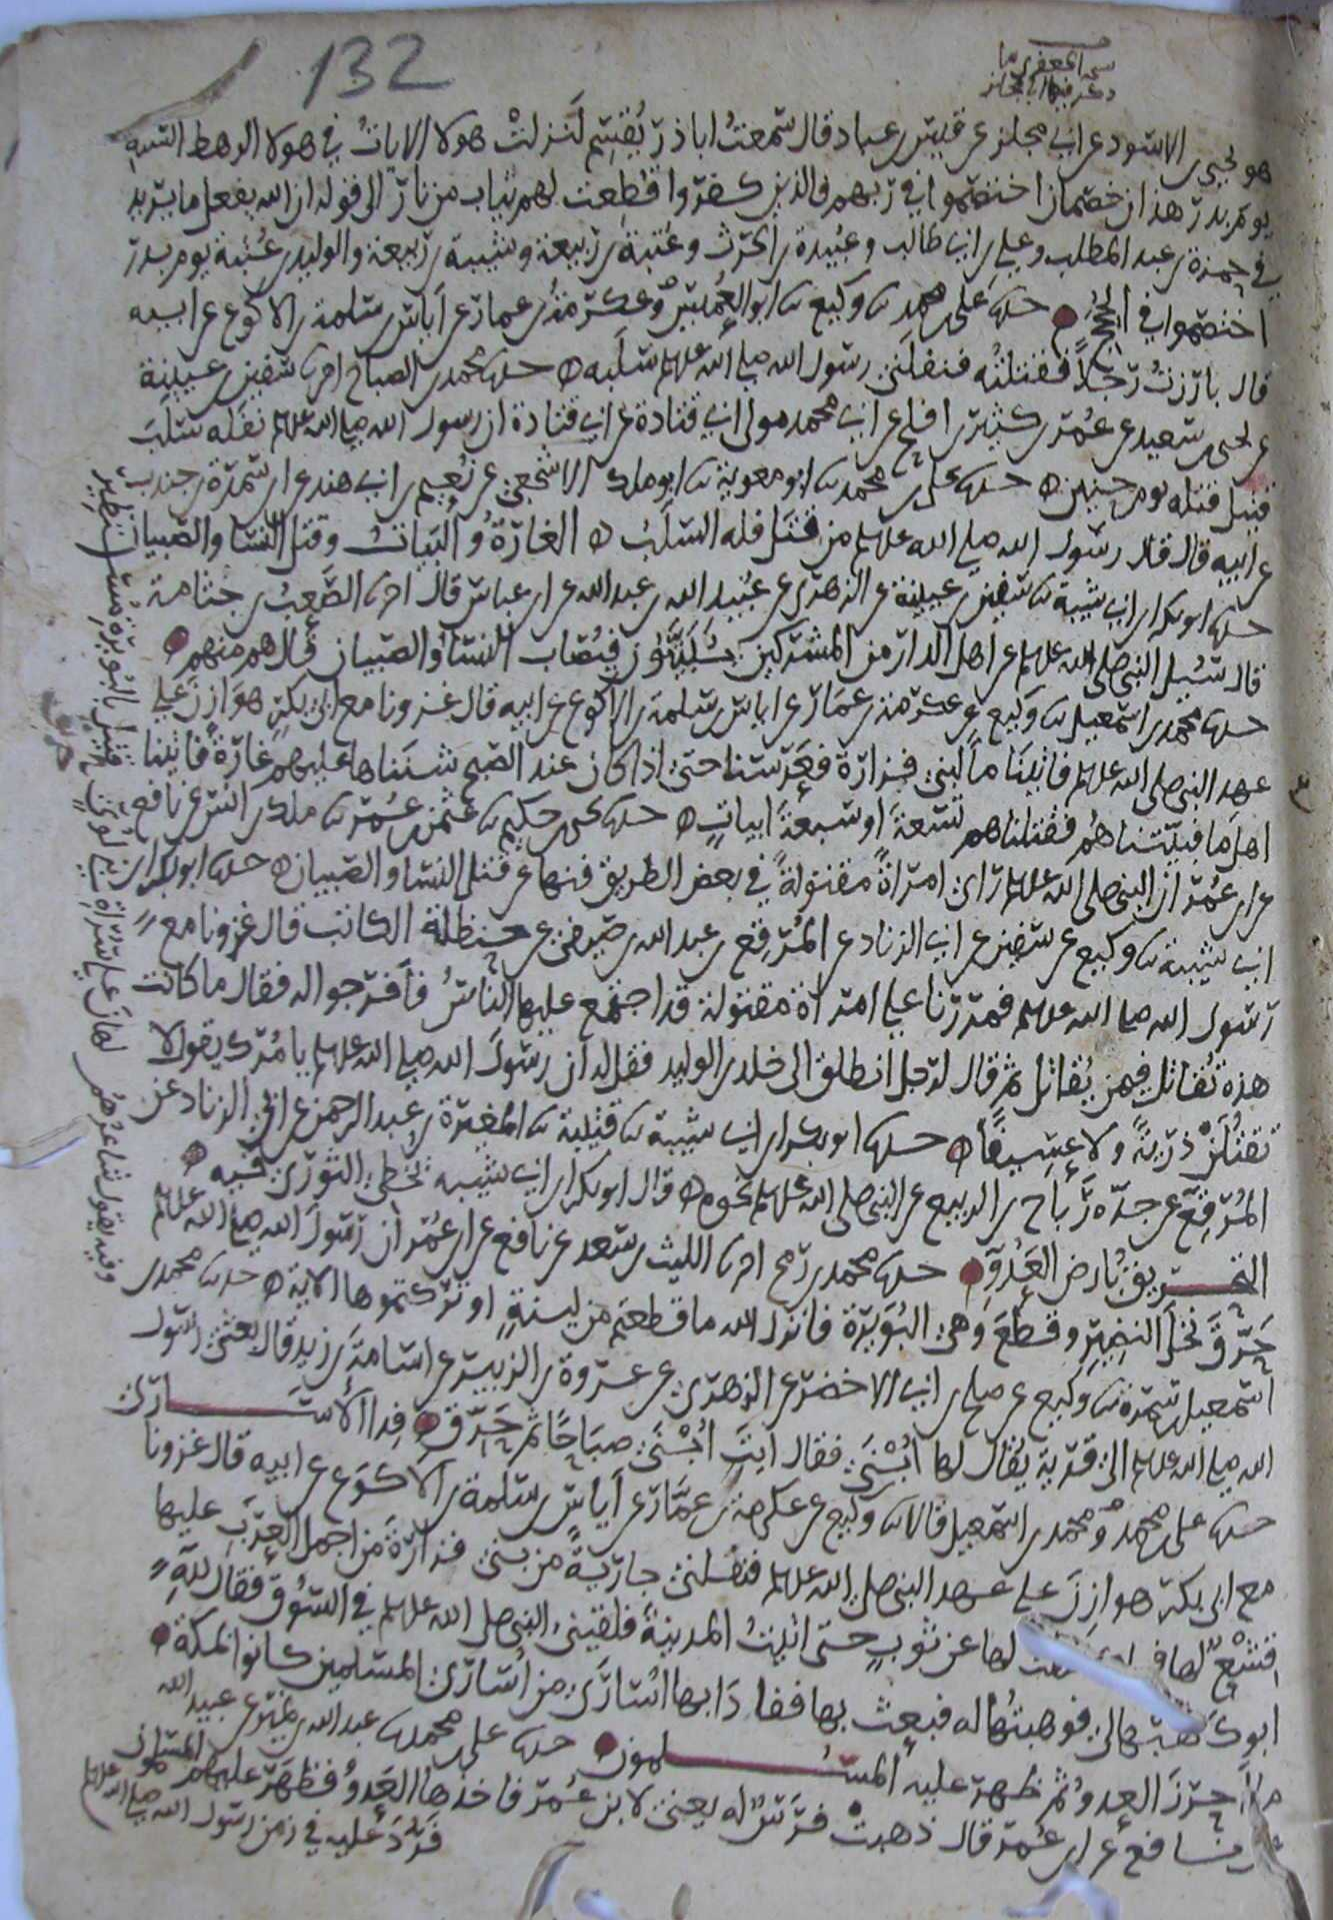 132
هو يحيى بن الاسود عن ابي مجلز عن قيس بن عباد قال سمعت ابا ذر يقسم لنزلت هولا الايات في هولا الرهط الستة
يوم بدر هذان خصمان اختصموا في ربهم فالذين كفروا قطعت لهم ثياب من نار الى قوله ان الله يفعل ما يريد
في حمزة بن عبد المطلب وعلي بن ابي طالب وعبيدة بن الحرث وعتبة بن ربيعة وشيبة بن ربيعة والوليد بن عتبة يوم بدر
اختصموا في الحجج حدثنا علي بن محمد نا وكيع نا ابو العميس وعكرمة بن عمار عن اياس بن سلمة بن الاكوع عن ابيه
قال بارزت رجلا فقتلته فنفلني رسول الله صلى الله عليه وسلم سلبه حدثنا محمد بن الصباح انا سفين بن عيينة
عن يحيى بن سعيد عن عمر بن كثير بن افلح عن ابي محمد مولى ابي قتادة عن ابي قتادة ان رسول الله صلى الله عليه وسلم نفله سلب
قتيل قتله يوم حنين حدثنا علي بن محمد نا ابو معوية نا ابو ملك الاشجعي عن نعيم بن ابي هند عن ابن سمرة بن جندب
عن ابيه قال قال رسول الله صلى الله عليه وسلم من قتل فله السلب الغارة والبيات وقتل النسا والصبيان
حدثنا ابو بكر بن ابي شيبة نا سفين بن عيينة عن الزهري عن عبيد الله بن عبد الله عن ابن عباس قال انا الصعب بن جثامة
قال سئل النبي صلى الله عليه وسلم عن اهل الدار من المشركين يبيتون فيصاب النسا والصبيان قال هم منهم
حدثنا محمد بن اسمعيل نا وكيع عن عكرمة بن عمار عن اياس بن سلمة بن الاكوع عن ابيه قال غزونا مع ابي بكر هوازن على
عهد النبي صلى الله عليه وسلم فاتينا ما لبني فزارة فعرسنا حتى اذا كان عند الصبح شنناها عليهم غارة فاتينا
اهل ما فبيتناهم فقتلناهم تسعة او سبعة ابيات حدثنا يحيى بن حكيم نا عثمن بن عمر نا ملك بن انس عن نافع
عن ابن عمر ان النبي صلى الله عليه وسلم راى امراة مقتولة في بعض الطريق فنها عن قتل النسا والصبيان حدثنا ابو بكر بن
ابي شيبة نا وكيع عن سفين عن ابي الزناد عن المرقع بن عبد الله بن صيفي عن حنظلة الكاتب قال غزونا مع
رسول الله صلى الله عليه وسلم فمررنا على امراة مقتولة قد اجتمع عليها الناس فافرجوا له فقال ما كانت
هذه تقاتل فيمن يقاتل ثم قال لرجل انطلق الى خلد بن الوليد فقل له ان رسول الله صلى الله عليه وسلم يامرك يقول لا
تقتلن ذرية ولا عسيفا حدثنا ابو بكر بن ابي شيبة نا قتيبة نا المغيرة بن عبد الرحمن عن ابي الزناد عن
المرقع عن جده رباح بن الربيع عن النبي صلى الله عليه وسلم نحوه قال ابو بكر بن ابي شيبة يخطئ الثوري فيه
التحريق بارض العدو حدثنا محمد بن رمح انا الليث بن سعد عن نافع عن ابن عمر ان رسول الله صلى الله عليه وسلم
حرق نخل النضير وقطع وهي البويرة فانزل الله ما قطعتم من لينة او تركتموها الاية حدثنا محمد بن
اسمعيل بن سمرة نا وكيع عن صلح بن ابي الاخضر عن الزهري عن عروة بن الزبير عن اسامة بن زيد قال بعثني رسول
الله صلى الله عليه وسلم الى قرية يقال لها ابنى فقال ايت ابنى صباحا ثم حرق فدا الاسارى
حدثنا علي بن محمد ومحمد بن اسمعيل قالا نا وكيع عن عكرمة بن عمار عن اياس بن سلمة بن الاكوع عن ابيه قال غزونا
مع ابي بكر هوازن على عهد النبي صلى الله عليه وسلم فنفلني جارية من بني فزارة من اجمل العرب عليها
قشع لها لها عن ثوب حتى اتيت المدينة فلقيني النبي صلى الله عليه وسلم في السوق فقال لله
ابوك هبها لي فوهبتها له فبعث بها ففادا بها اسارى من اسارى المسلمين كانوا بمكة
ما احرز العدو ثم ظهر عليه المسلمون حدثنا علي بن محمد نا عبد الله بن نمير عن عبيد الله
عن نافع عن ابن عمر قال ذهبت فرس له يعني لابن عمر فاخذها العدو فظهر عليهم المسلمون
فرد عليه في زمن رسول الله صلى الله عليه وسلم
وفيه يقول شاعرهم لهان على سراة بني لوي حريق بالبويرة مستطير